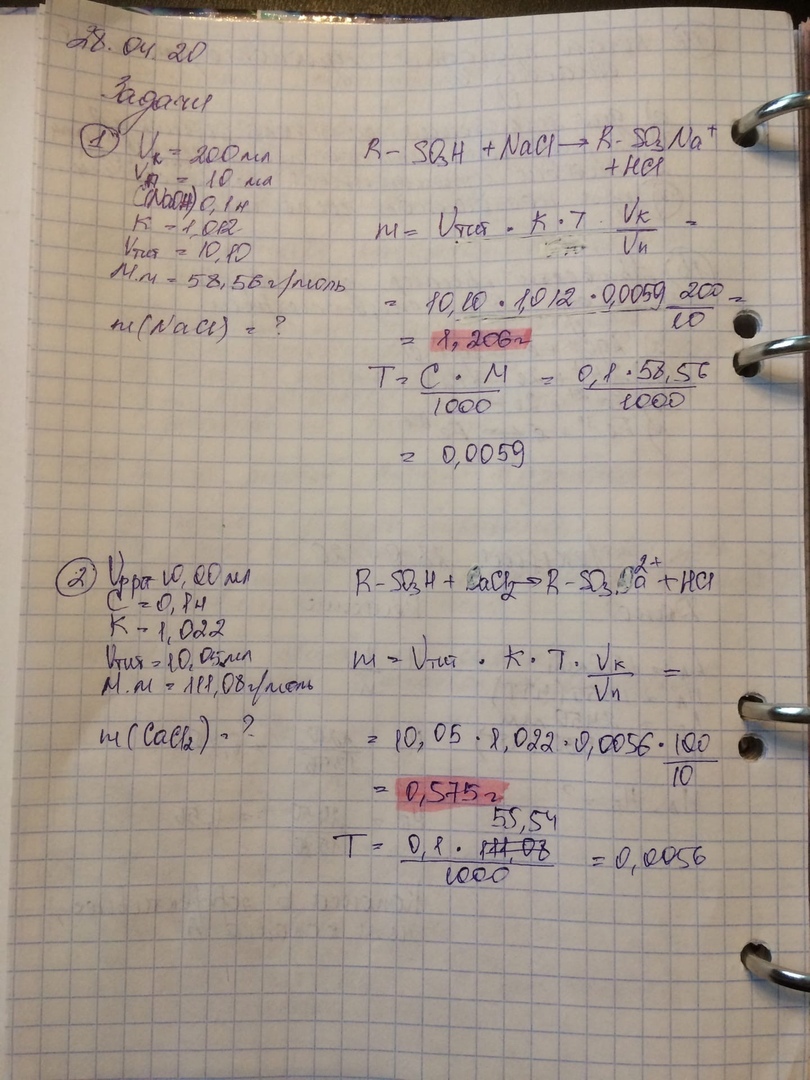 28.04.20
Задачи
1 Vк = 200 мл
Vп = 10 мл
C(NaOH) 0,1н
K = 1,012
Vтит = 10,10
М.м = 58,56 г/моль
m(NaCl) = ?
R - SO3H + NaCl → R - SO3Na+
+ HCl
m = Vтит · K · T Vк/Vп =
= 10,10 · 1,012 · 0,0059 200/10 =
= 1,206 г
T = C · M/1000 = 0,1 · 58,56/1000
= 0,0059
2 Vрра 10,00 мл
C = 0,1н
K = 1,022
Vтит = 10,05 мл
М.м = 111,08 г/моль
m(CaCl2) = ?
R - SO3H + CaCl2 → R - SO3Ca2+ + HCl
m = Vтит · K · T · Vк/Vп =
= 10,05 · 1,022 · 0,0056 · 100/10
= 0,575 г
55,54
T = 0,1 · 111,08/1000 = 0,0056